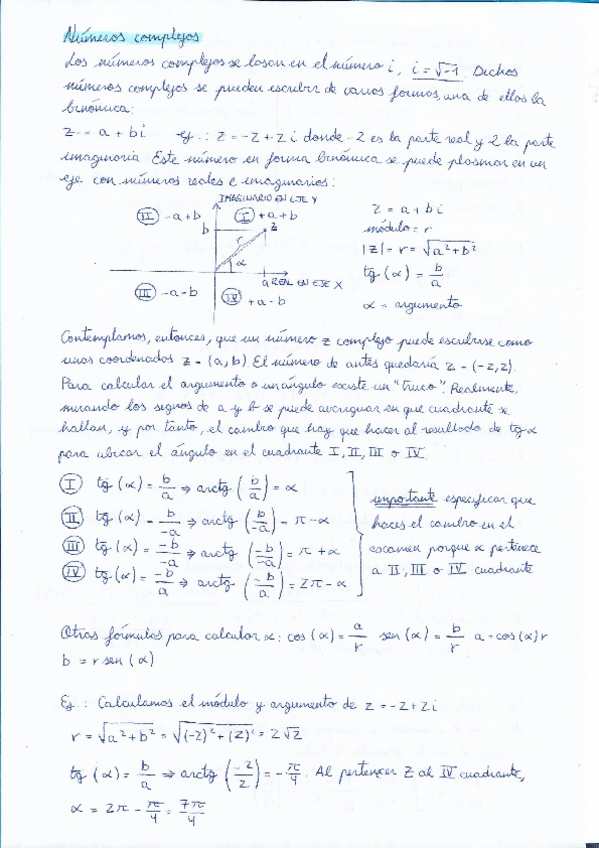 Números complejos
Los números complejos se basan en el número i, i = √-1. Dichos
números complejos se pueden escribir de varias formas, una de ellas la
binómica:
z = a + bi ej.: z = -2 + 2i donde -2 es la parte real y 2 la parte
imaginaria. Este número en forma binómica se puede plasmar en un
eje con números reales e imaginarios:
IMAGINARIO EN EJE Y
II -a+b I +a+b
b z
r α
a REAL EN EJE X
III -a-b IV +a-b
z = a + bi
módulo = r
|z| = r = √a²+b²
tg (α) = b/a
α = argumento
Contemplamos, entonces, que un número z complejo puede escribirse como
unas coordenadas z = (a, b). El número de antes quedaría z = (-2, 2).
Para calcular el argumento o un ángulo existe un "truco". Realmente,
mirando los signos de a y b se puede averiguar en que cuadrante se
hallan, y por tanto, el cambio que hay que hacer al resultado de tg α
para ubicar el ángulo en el cuadrante I, II, III o IV.
I tg (α) = b/a ⇒ arctg (b/a) = α
II tg (α) = b/-a ⇒ arctg (b/-a) = π - α
III tg (α) = -b/-a ⇒ arctg (-b/-a) = π + α
IV tg (α) = -b/a ⇒ arctg (-b/a) = 2π - α
importante especificar que
haces el cambio en el
examen porque α pertenece
a II, III o IV cuadrante
Otras fórmulas para calcular α: cos (α) = a/r sen (α) = b/r a = cos (α) r
b = r sen (α)
Ej.: Calculamos el módulo y argumento de z = -2 + 2i
r = √a²+b² = √(-2)²+(2)² = 2√2
tg (α) = b/a ⇒ arctg (-2/2) = -π/4. Al pertenecer z al IV cuadrante,
α = 2π - π/4 = 7π/4